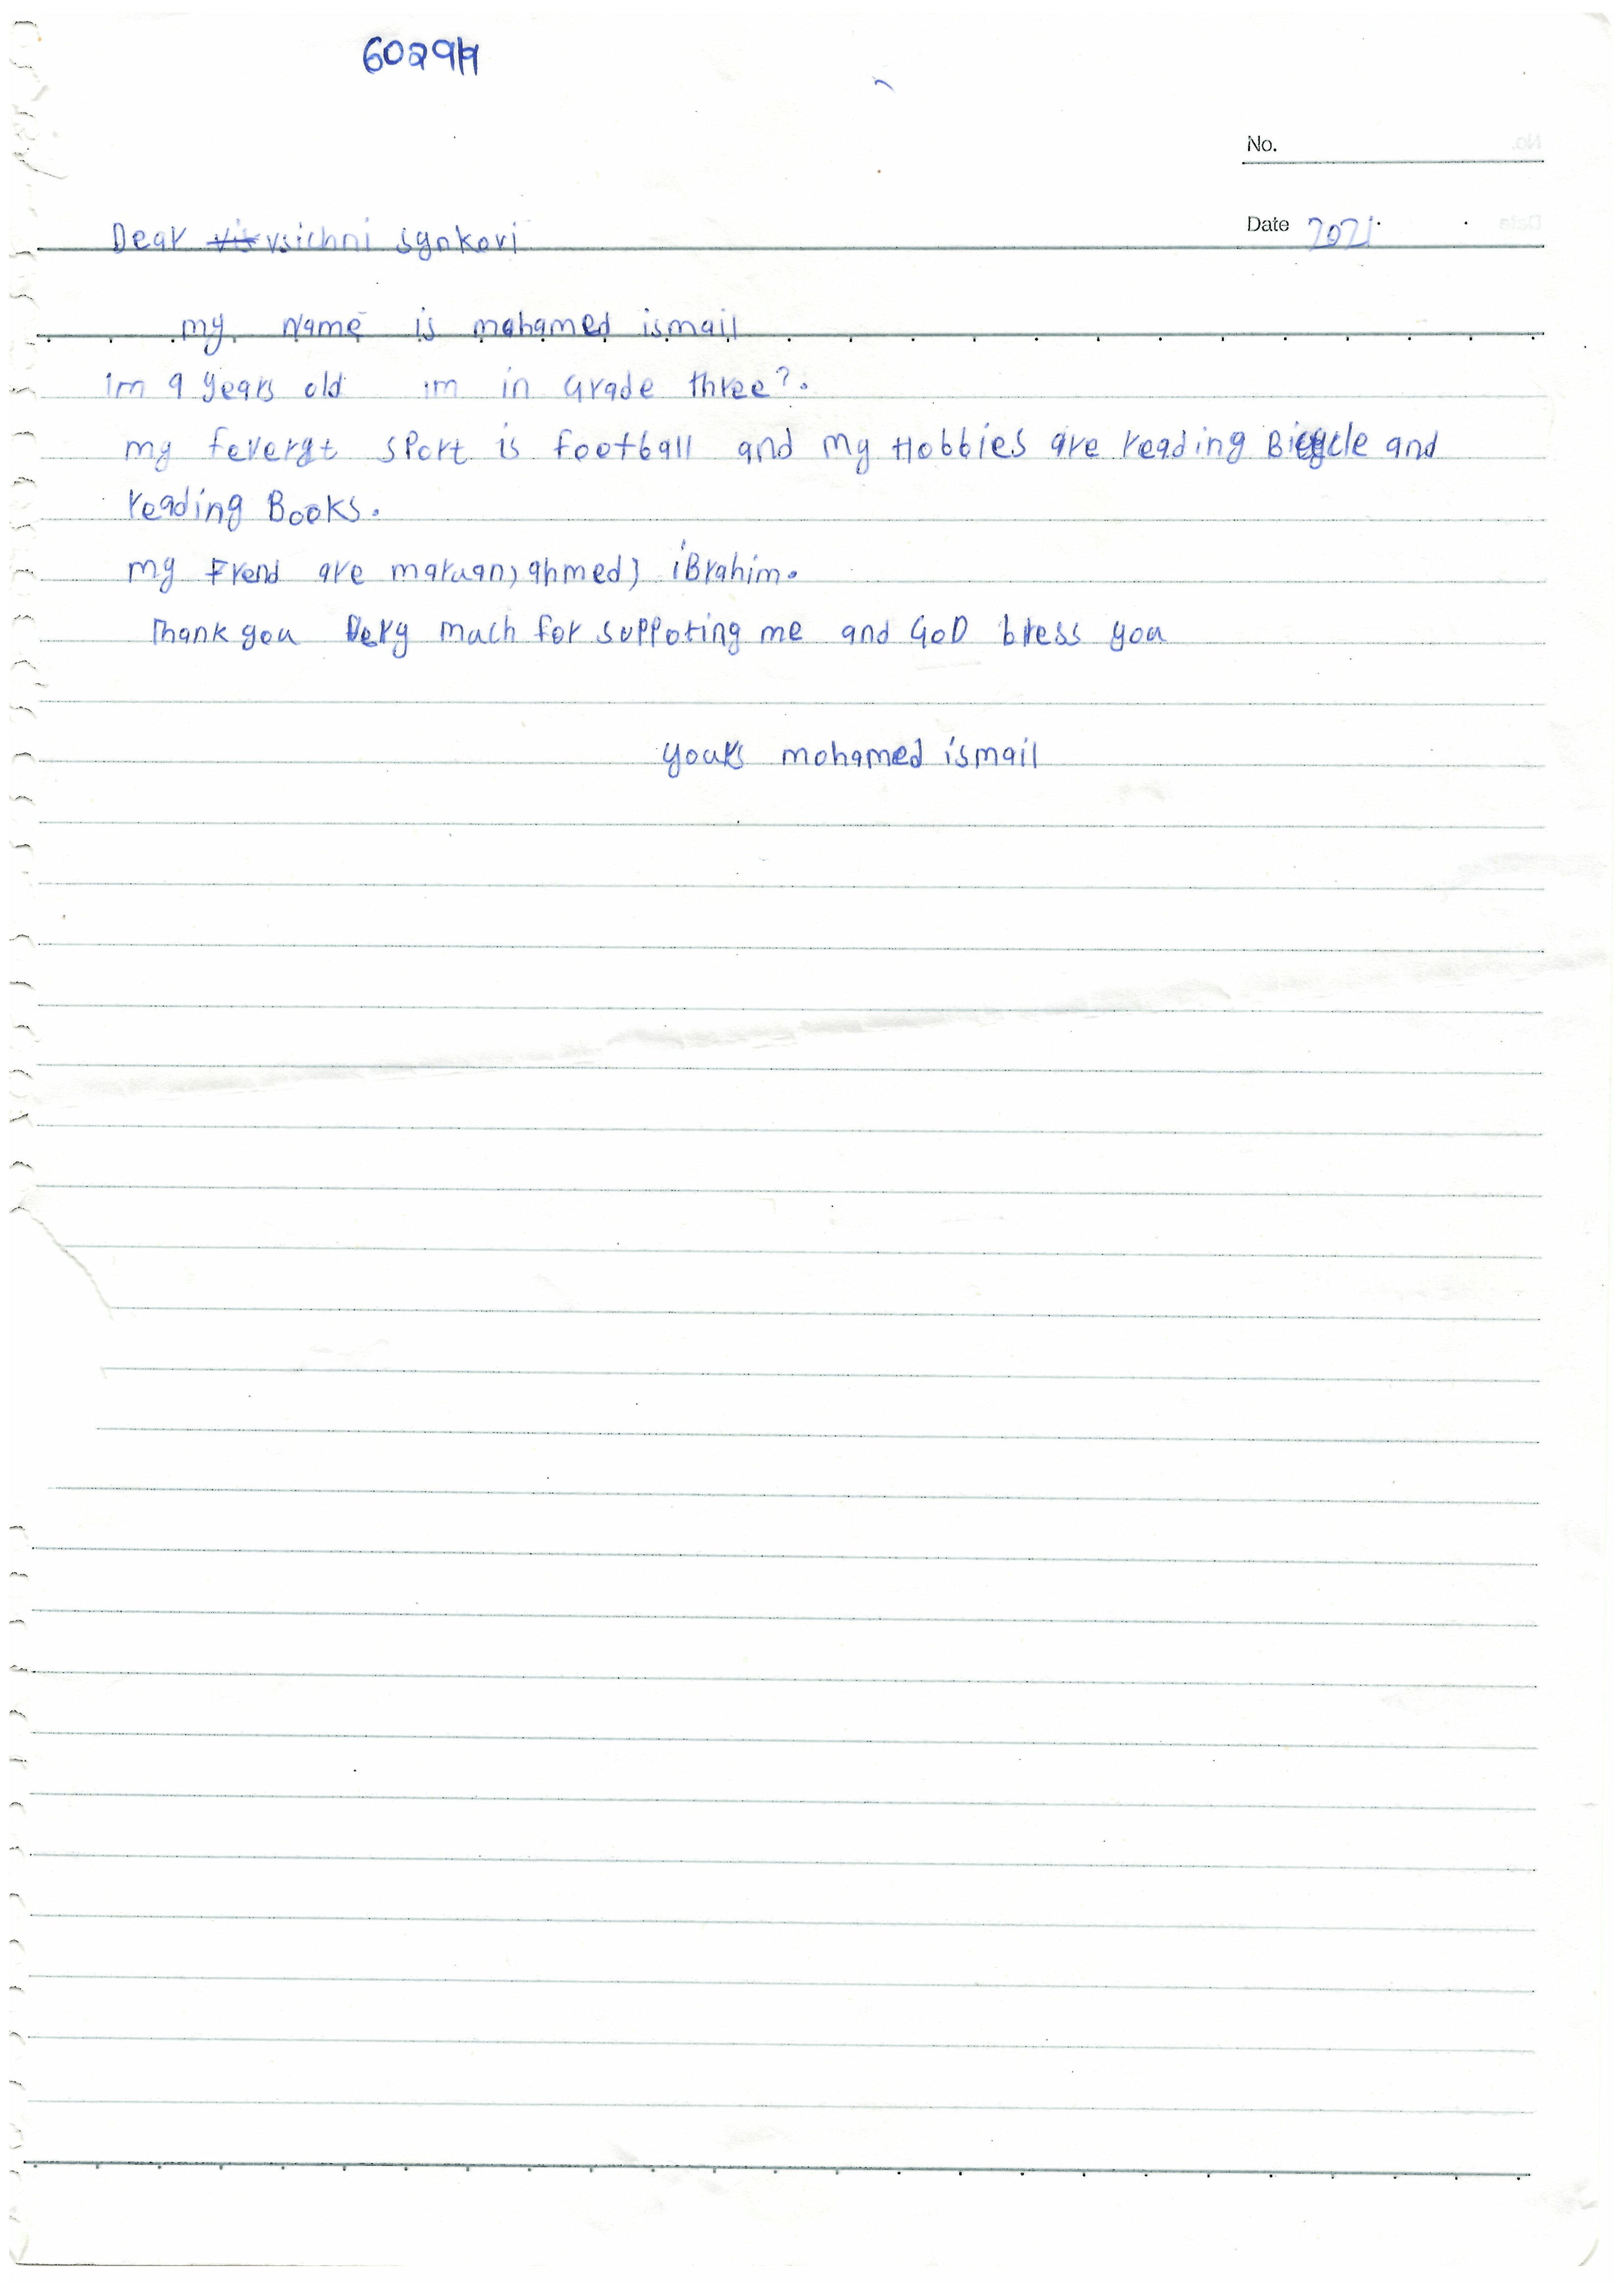 No.
Date 2021
Dear vsichni synkovi
my Name is mohamed ismail
im 9 years old im in Grade three?.
my feveret sport is football and my Hobbies are reading Bicycle and
reading Books.
my Frend are maruan, ahmed, iBrahim.
Thank you very much for suppoting me and GoD bless you
yours mohamed ismail